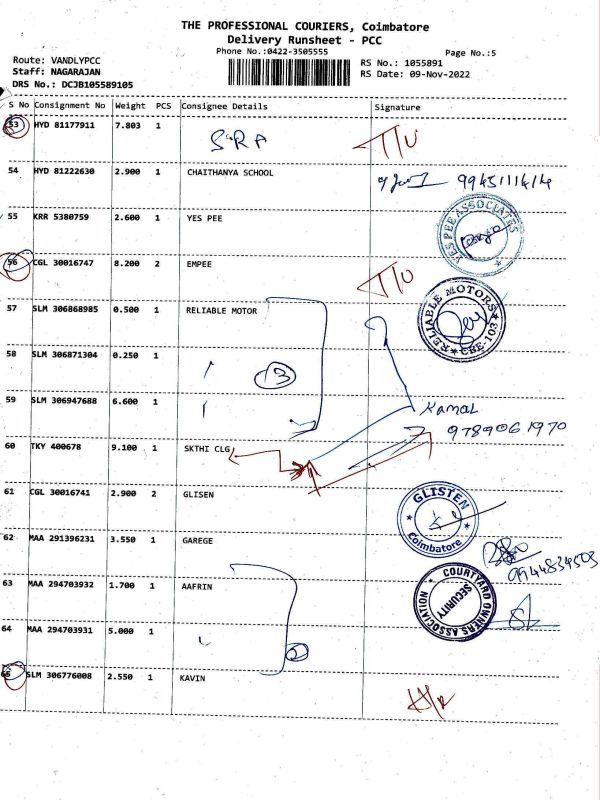 THE PROFESSIONAL COURIERS, Coimbatore
Delivery Runsheet - PCC
Phone No.:0422-3505555
Page No.:5
Route: VANDLYPCC
RS No.: 1055891
Staff: NAGARAJAN
RS Date: 09-Nov-2022
DRS No.: DCJB105589105
S No Consignment No Weight PCS Consignee Details Signature
53 HYD 81177911 7.803 1 SRA T/U
54 HYD 81222630 2.900 1 CHAITHANYA SCHOOL
55 KRR 5380759 2.600 1 YES PEE
YES PEE ASSOCIATES
56 CGL 30016747 8.200 2 EMPEE T/U
57 SLM 306868985 0.500 1 RELIABLE MOTOR
RELIABLE MOTORS CBE-103
58 SLM 306871304 0.250 1
3
59 SLM 306947688 6.600 1
Kamal
9789061970
60 TKY 400678 9.100 1 SKTHI CLG
61 CGL 30016741 2.900 2 GLISEN
GLISTEN
Coimbatore
62 MAA 291396231 3.550 1 GAREGE
9944834503
63 MAA 294703932 1.700 1 AAFRIN
COURTYARD OWNERS ASSOCIATION
SECURITY
64 MAA 294703931 5.000 1
2
65 SLM 306776008 2.550 1 KAVIN